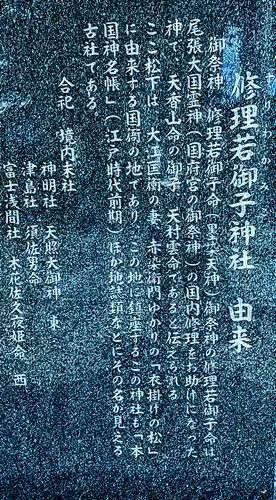 修理若御子神社　由来
御祭神　修理若御子命（黒雲天神）御祭神の修理若御子命は
尾張大国霊神（国府宮の御祭神）の国内修理をお助けになった
神で、天香山命の御子、天村雲命であると伝えられる
ここ松下は、大江匡衡の妻、赤染衛門ゆかりの「衣掛けの松」
に由来する国衙の地であり、この地に鎮座するこの神社も「本
国神名帳」（江戸時代前期）ほか地誌類などにその名が見える
古社である。
合祀　境内末社
神明社　天照大御神　東
津島社　須佐男命
富士浅間社　木花佐久夜姫命　西